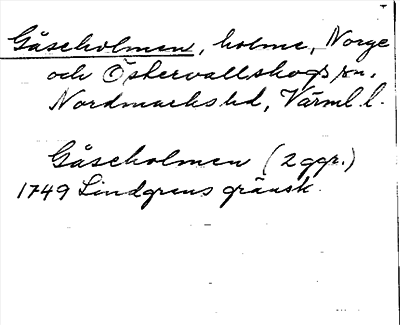 Gåseholmen, holme, Norge
och Östervallskogs sn,
Nordmarks hd, Värml l.
Gåseholmen (2 ggr.)
1749 Lindgrens gränsk.